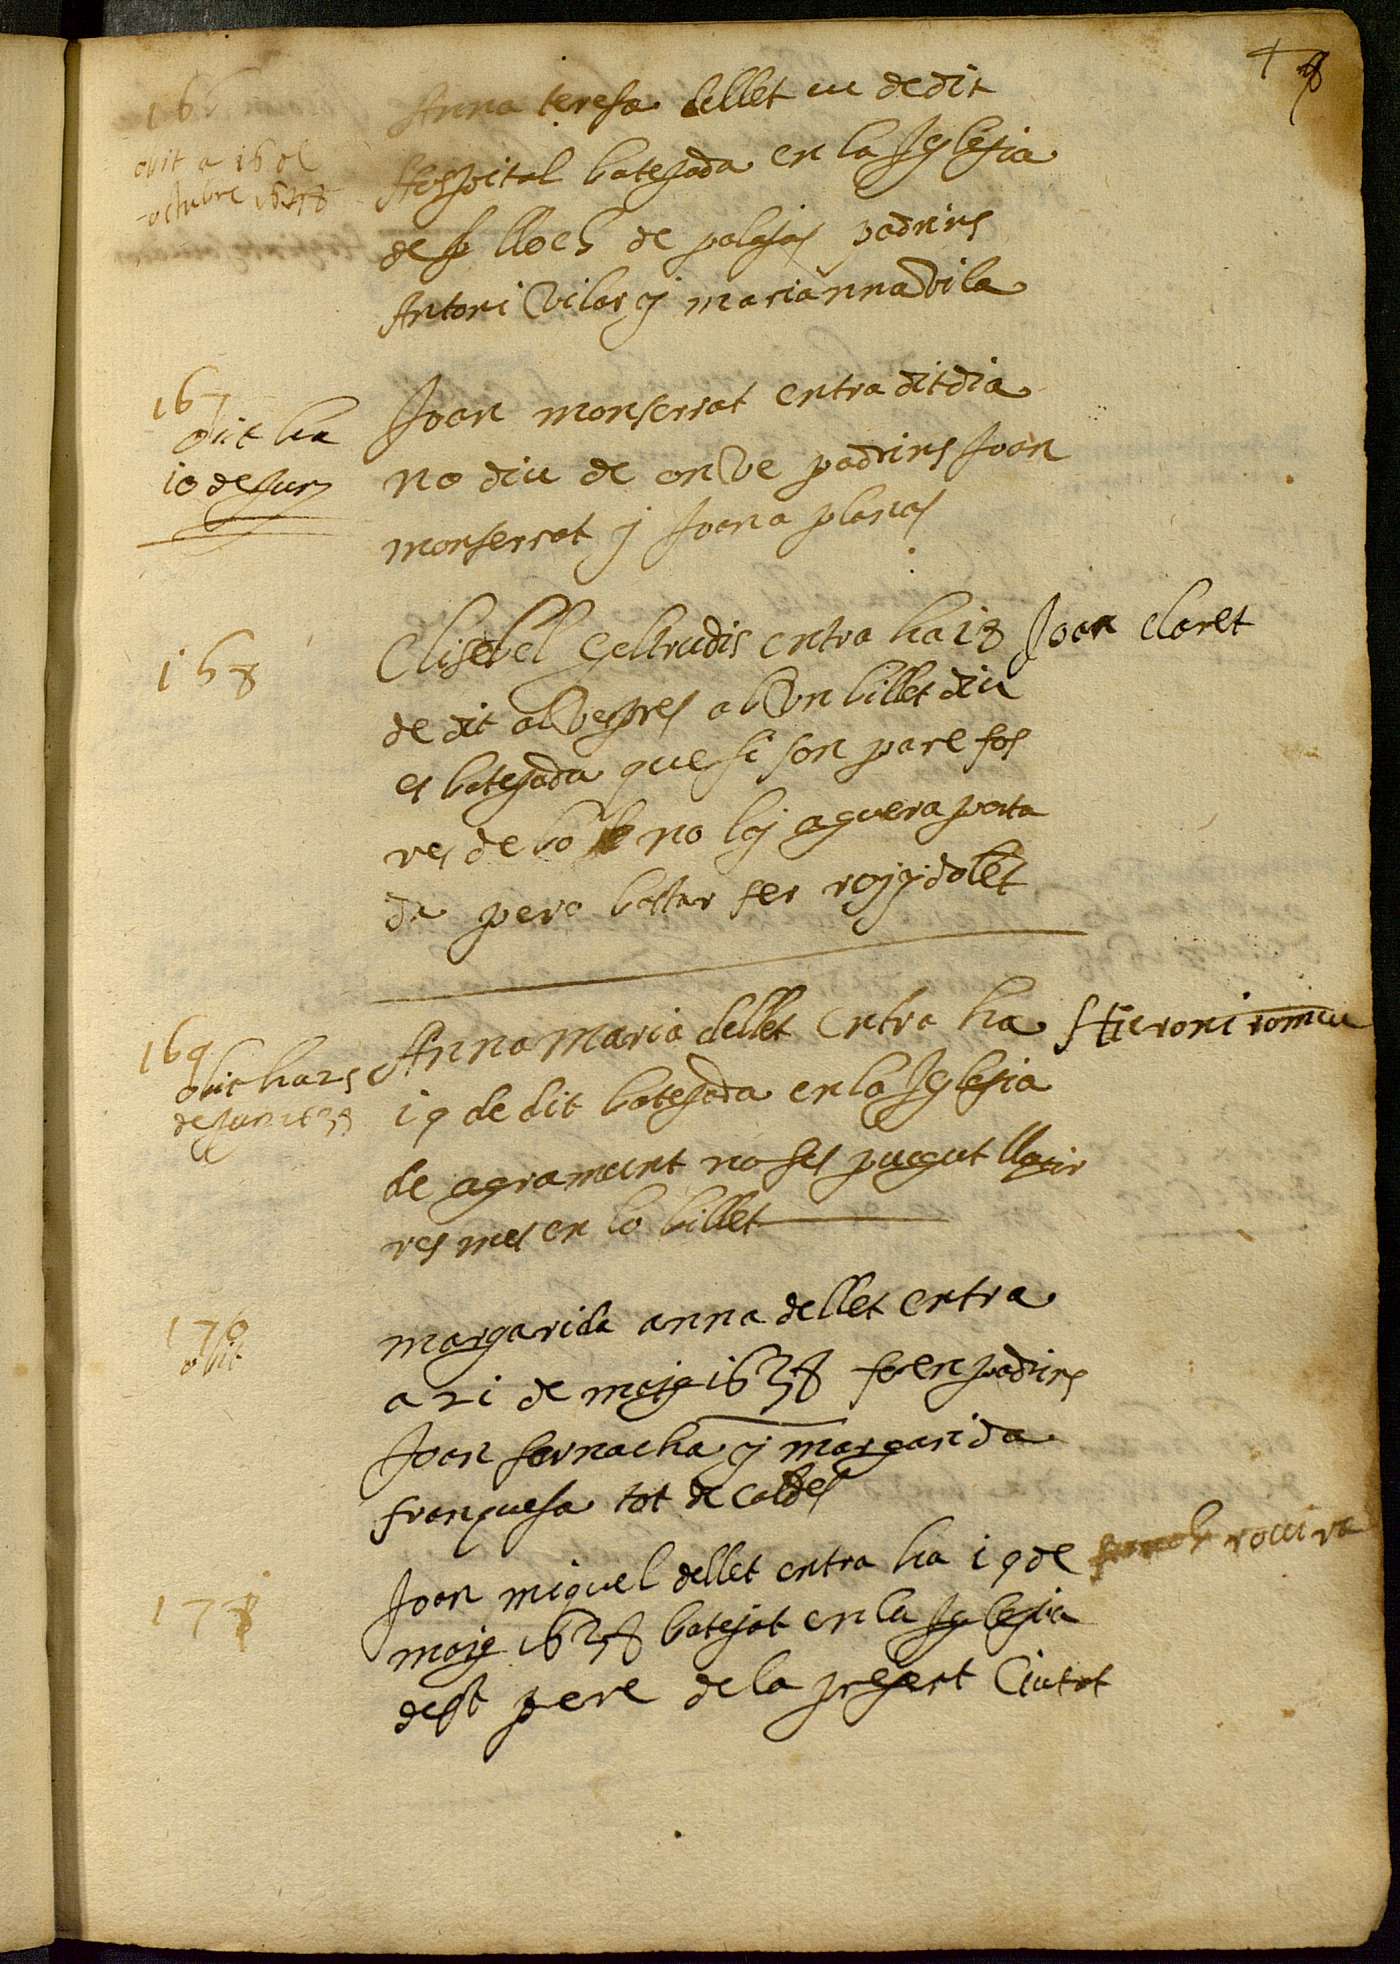 48
166
obit a 16 de
octubre 1638
Anna teresa dellet ve de dit
Hospital batejada en la Iglesia
de lloch de palajas padrins
Antoni Vilar y marianna Vila
167
obit ha
10 de Jun
Joan monserrat entra dit dia
no diu de on Ve padrins Joan
monserrat y Joana planas
168
Elisebel Geltrudis entra ha 18
Joan claret
de dit al Vespres ab Vn billet diu
es batejada que si son pare fos
res de bo no lj aguera porta
da pero bastar ser roj y dolet
169
obit ha 25
de Jun 1638
Anna Maria dellet Entra ha
Hieroni romeu
19 de dit batejada en la Iglesia
de agramunt no ses pugut llegir
res mes en lo billet
170
obit
margarida anna dellet entra
a 21 de maig 1638 foren padrins
Joan fornacha y margarida
franquesa tot de Caldes
171
Joan miquel dellet entra ha 19 de
rovira
maig 1638 batejat en la Iglesia
de st pere de la present Ciutat